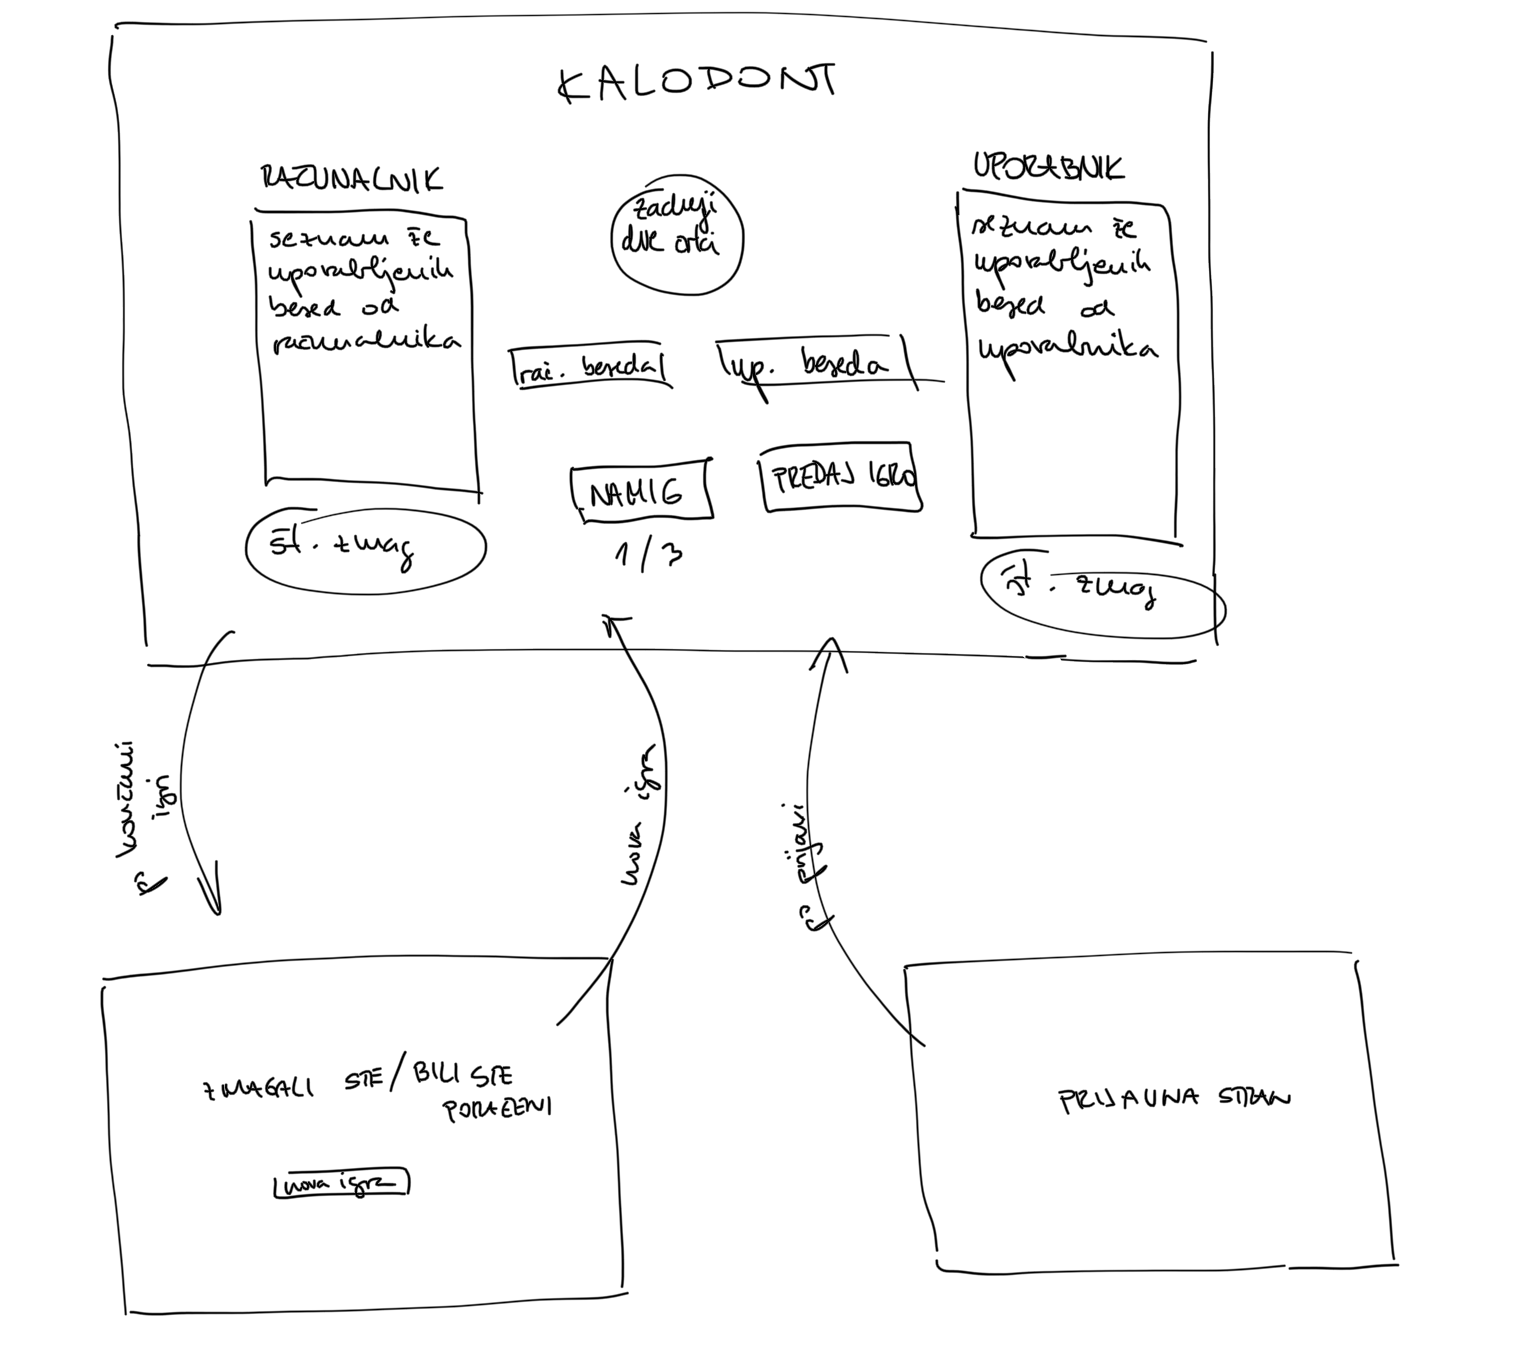 KALODONT
RAČUNALNIK
seznam že
uporabljenih
besed od
računalnika
št. zmag
zadnji
dve črki
rač. beseda
up. beseda
NAMIG
1/3
PREDAJ IGRO
UPORABNIK
seznam že
uporabljenih
besed od
uporabnika
št. zmag
po končani
igri
nova igra
po prijavi
ZMAGALI STE/BILI STE
PORAŽENI
nova igra
PRIJAVNA STRAN